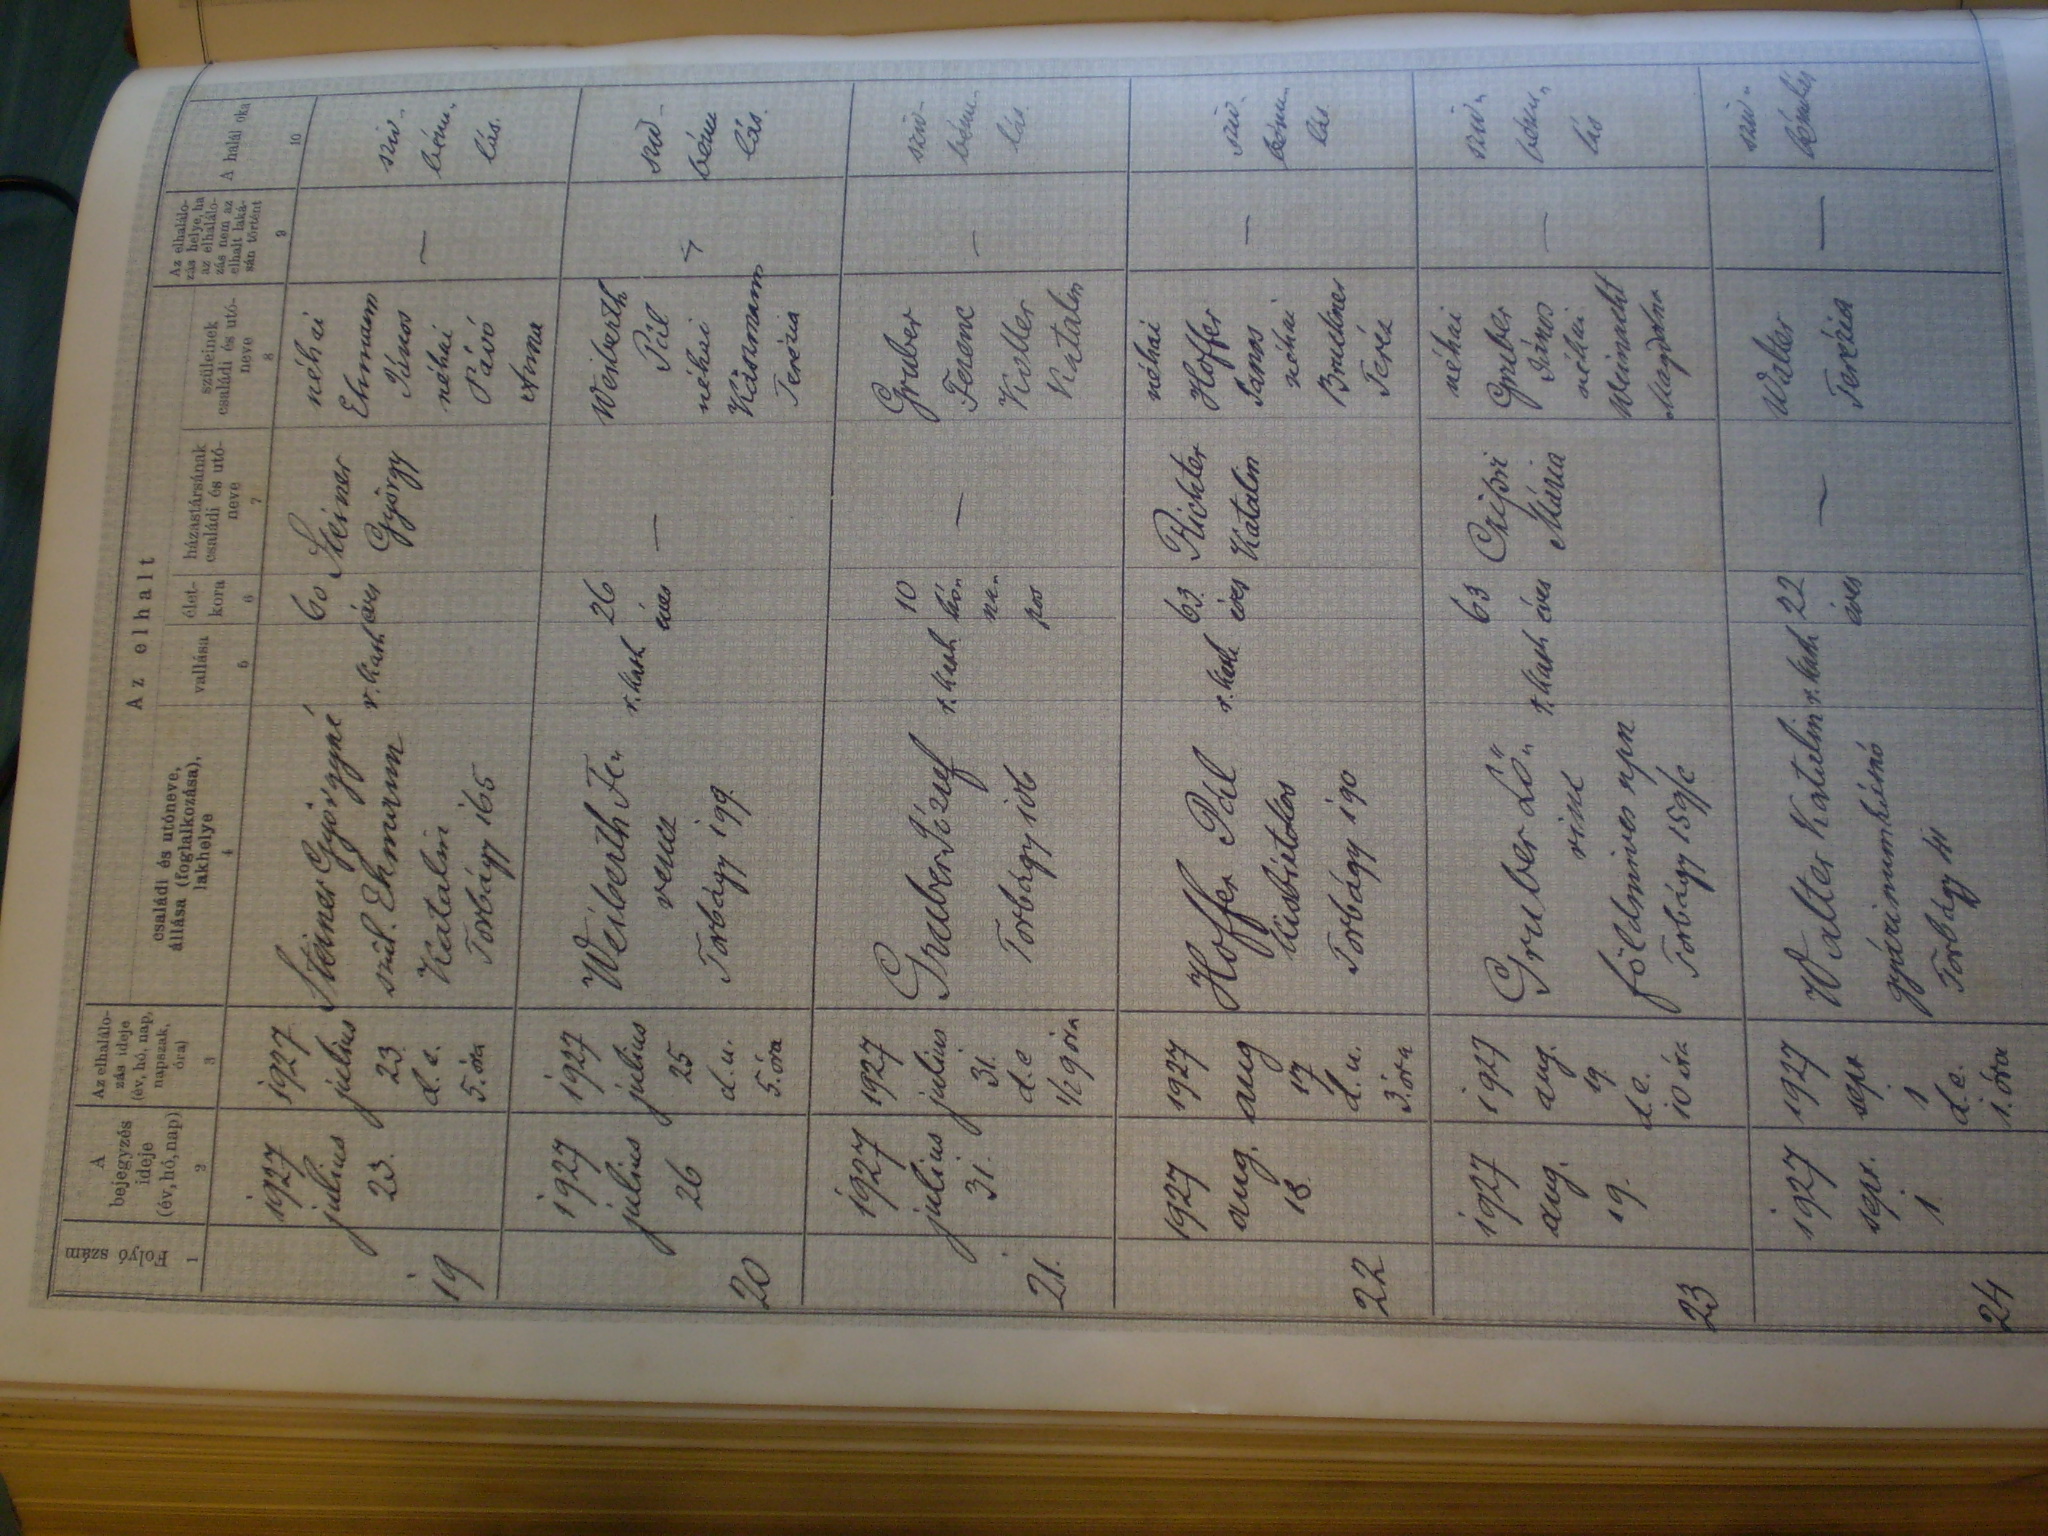 Az elhalt
Folyó szám
A
bejegyzés
ideje
(év, hó, nap)
Az elhalálo-
zás ideje
(év, hó, nap,
napszak,
óra)
családi és utóneve,
állása (foglalkozása),
lakhelye
vallása
élet-
kora
házastársának
családi és utó-
neve
szüleinek
családi és utó-
neve
Az elhalálo-
zás helye, ha
az elhalálo-
zás nem az
elhalt laká-
sán történt
A halál oka
1
2
3
4
5
6
7
8
9
10
19
1927
július
23.
1927
július
23.
d. e.
5. óra
Steiner Györgyné
szül. Ehmann
Katalin
Torbágy 165
r. kath
60
éves
Steiner
György
néhai
Ehmann
János
néhai
Anna
—
szív-
bénu-
lás.
20
1927
július
26
1927
július
25
d. u.
5. óra
Weiberth Fe-
rencz
Torbágy 199.
r. kath
26
éves
—
Weiberth
Pál
néhai
Terézia
—
szív-
bénu
lás.
21.
1927
július
31.
1927
július
31.
d. e
1/2 9 óra
Gruber József
Torbágy 106
r. kath
10
hó-
na-
pos
—
Gruber
Ferenc
Katalin
—
szív-
bénu-
lás.
22
1927
aug.
18.
1927
aug
17
d. u.
3. óra
Hoffer Pál
kisbirtokos
Torbágy 190
r. kath.
63.
éves
Richter
Katalin
néhai
Hoffer
János
néhai
Teréz
—
szív-
bénu-
lás
23
1927
aug.
19.
1927
aug.
19.
d. e.
10 óra
Gruber Lő-
rinc
földmives
Torbágy 159/c
r. kath
63
éves
Mária
néhai
Gruber
János
néhai
Magdolna
—
szív-
bénu-
lás
24
1927
sept.
1.
1927
sept
1
d. e.
1. óra
Walter Katalin
gyárimunkásnő
Torbágy 41
r. kath
22
éves
—
Walter
Terézia
—
szív-
bénulás